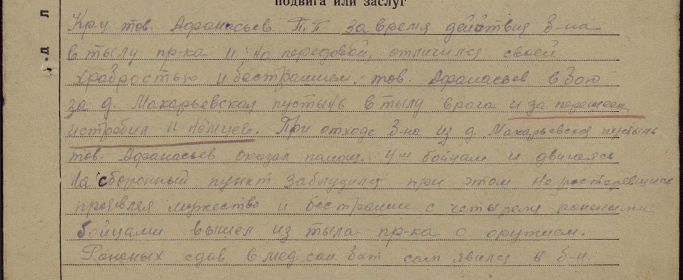 подвига или заслуг
Кру тов. Афанасьев П.П за время действия б-на
в тылу пр-ка и на передовой, отличился своей
храбростью и бестрашием. тов. Афанасьев в бою
за д. Макарьевская пустынь в тылу врага и за перешеек
истребил 11 немцев. При отходе б-на из д. Макарьевская пустынь
тов. Афанасьев оказал помощ. 4ым бойцам и двигаясь
На сборочный пункт заблудился при этом не растерявшись
проявляя мужество и бестрашие с четырмя ранеными
бойцами вышел из тыла пр-ка с оружием.
Раненых сдав в мед сан бат сам явился в б-н